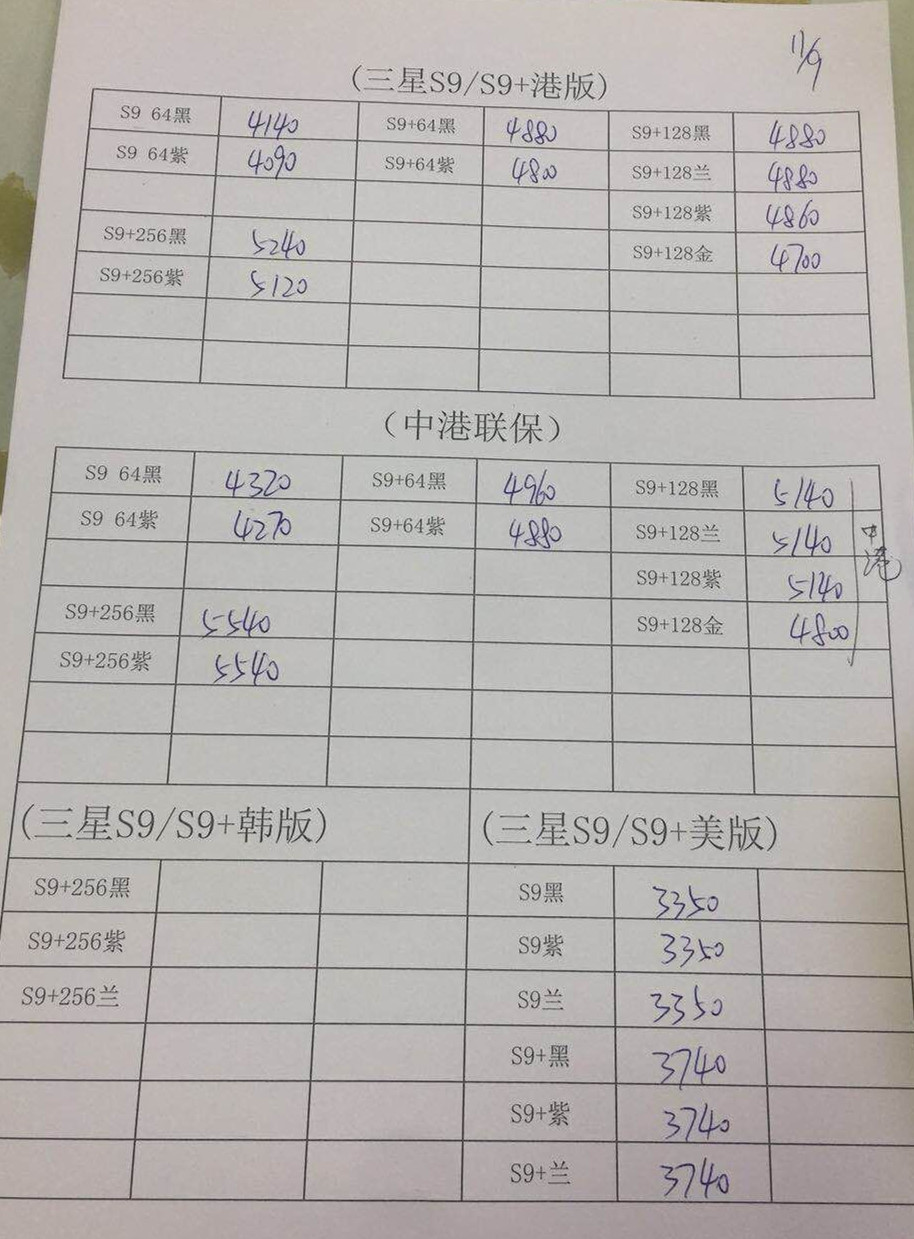 11/9
(三星S9/S9+港版)
S9 64黑 4140 S9+64黑 4880 S9+128黑 4880
S9 64紫 4090 S9+64紫 4800 S9+128兰 4880
S9+128紫 4860
S9+256黑 5240 S9+128金 4700
S9+256紫 5120
(中港联保)
S9 64黑 4320 S9+64黑 4960 S9+128黑 5140
S9 64紫 4270 S9+64紫 4880 S9+128兰 5140
中港
S9+128紫 5140
S9+256黑 5540 S9+128金 4800
S9+256紫 5540
(三星S9/S9+韩版) (三星S9/S9+美版)
S9+256黑 S9黑 3350
S9+256紫 S9紫 3350
S9+256兰 S9兰 3350
S9+黑 3740
S9+紫 3740
S9+兰 3740